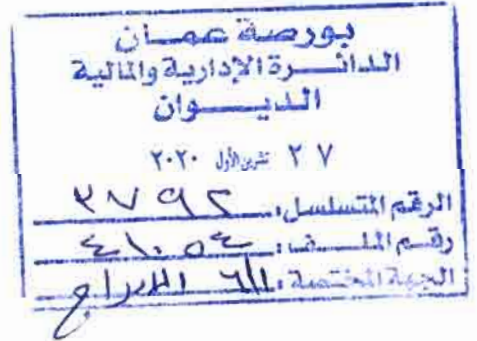 بورصة عمان
الدائرة الإدارية والمالية
الديوان
٢٧ تشرين الأول ٢٠٢٠
الرقم المتسلسل: ٣٧٩٢
رقم الملف: ٤١٠٥٤
الجهة المختصة: الإدراج